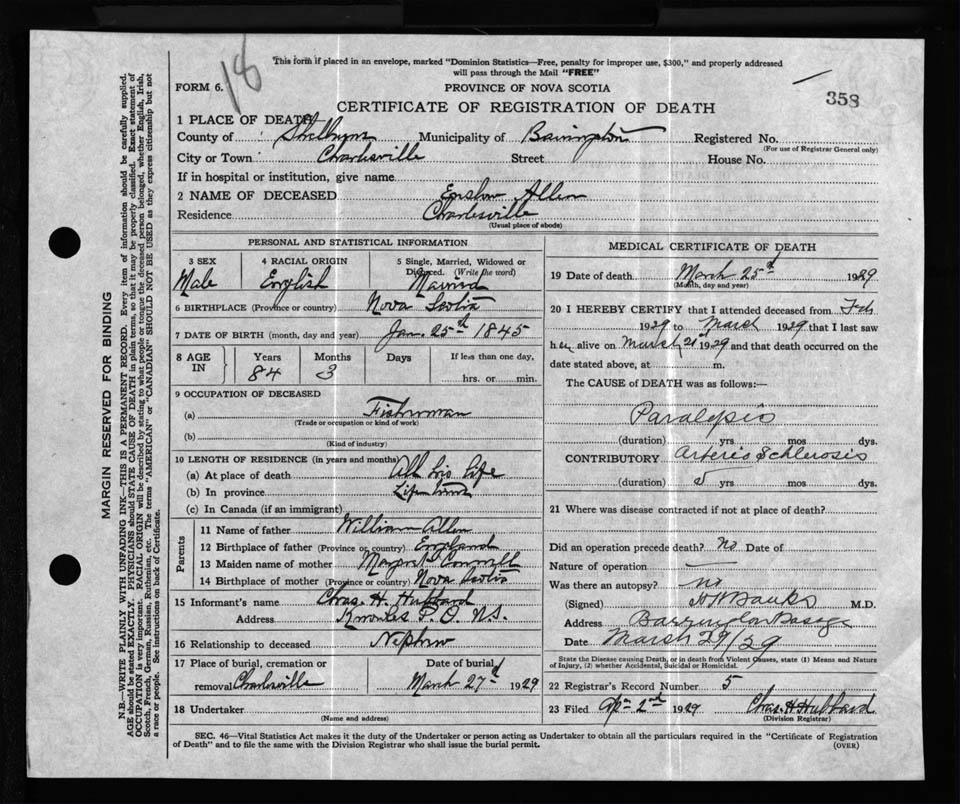 18
This form if placed in an envelope, marked "Dominion Statistics—Free, penalty for improper use, $300," and properly addressed
will pass through the Mail "FREE"
FORM 6.
PROVINCE OF NOVA SCOTIA
358
CERTIFICATE OF REGISTRATION OF DEATH
1 PLACE OF DEATH
County of Shelburne Municipality of Barrington Registered No.
(For use of Registrar General only)
City or Town Charlesville Street House No.
If in hospital or institution, give name
2 NAME OF DECEASED Allen
Residence Charlesville
(Usual place of abode)
PERSONAL AND STATISTICAL INFORMATION
3 SEX 4 RACIAL ORIGIN 5 Single, Married, Widowed or
Divorced. (Write the word)
Male English Married
6 BIRTHPLACE (Province or country) Nova Scotia
7 DATE OF BIRTH (month, day and year) Jan 25th 1845
8 AGE IN Years Months Days If less than one day,
84 3 hrs. or min.
9 OCCUPATION OF DECEASED
(a) Fisherman
(Trade or occupation or kind of work)
(b)
(Kind of industry)
10 LENGTH OF RESIDENCE (in years and months)
(a) At place of death All his life
(b) In province Life time
(c) In Canada (if an immigrant)
Parents
11 Name of father William Allen
12 Birthplace of father (Province or country) England
13 Maiden name of mother Margret
14 Birthplace of mother (Province or country) Nova Scotia
15 Informant's name Chas. H. Hubbard
Address P.O. N.S.
16 Relationship to deceased Nephew
17 Place of burial, cremation or Date of burial
removal Charlesville March 27th 1929
18 Undertaker
(Name and address)
MEDICAL CERTIFICATE OF DEATH
19 Date of death March 25th 1929
(Month, day and year)
20 I HEREBY CERTIFY that I attended deceased from Feb
1929 to March 1929 that I last saw
h alive on March 21st 1929 and that death occurred on the
date stated above, at m.
The CAUSE of DEATH was as follows:—
Paralysis
(duration) yrs mos dys.
CONTRIBUTORY Arterio Schlerosis
(duration) 5 yrs mos dys.
21 Where was disease contracted if not at place of death?
Did an operation precede death? no Date of
Nature of operation —
Was there an autopsy? no
(Signed) Banks M.D.
Address Barrington Passage
Date March 29/29
State the Disease causing Death, or in death from Violent Causes, state (1) Means and Nature
of Injury, (2) whether Accidental, Suicidal or Homicidal.
22 Registrar's Record Number 5
23 Filed Apr 2nd 1929 Chas. H. Hubbard
(Division Registrar)
SEC. 46—Vital Statistics Act makes it the duty of the Undertaker or person acting as Undertaker to obtain all the particulars required in the "Certificate of Registration
of Death" and to file the same with the Division Registrar who shall issue the burial permit.
(OVER)
MARGIN RESERVED FOR BINDING
N.B.—WRITE PLAINLY WITH UNFADING INK—THIS IS A PERMANENT RECORD. Every item of information should be carefully supplied.
AGE should be stated EXACTLY. PHYSICIANS should STATE CAUSE OF DEATH in plain terms, so that it may be properly classified. Exact statement of
OCCUPATION is very important. RACIAL ORIGIN will be described by stating to what people or tongue the deceased person belonged, whether English, Irish,
Scotch, French, German, Russian, Ruthenian, etc. The terms "AMERICAN" or "CANADIAN" SHOULD NOT BE USED as they express citizenship but not
a race or people. See instructions on back of Certificate.